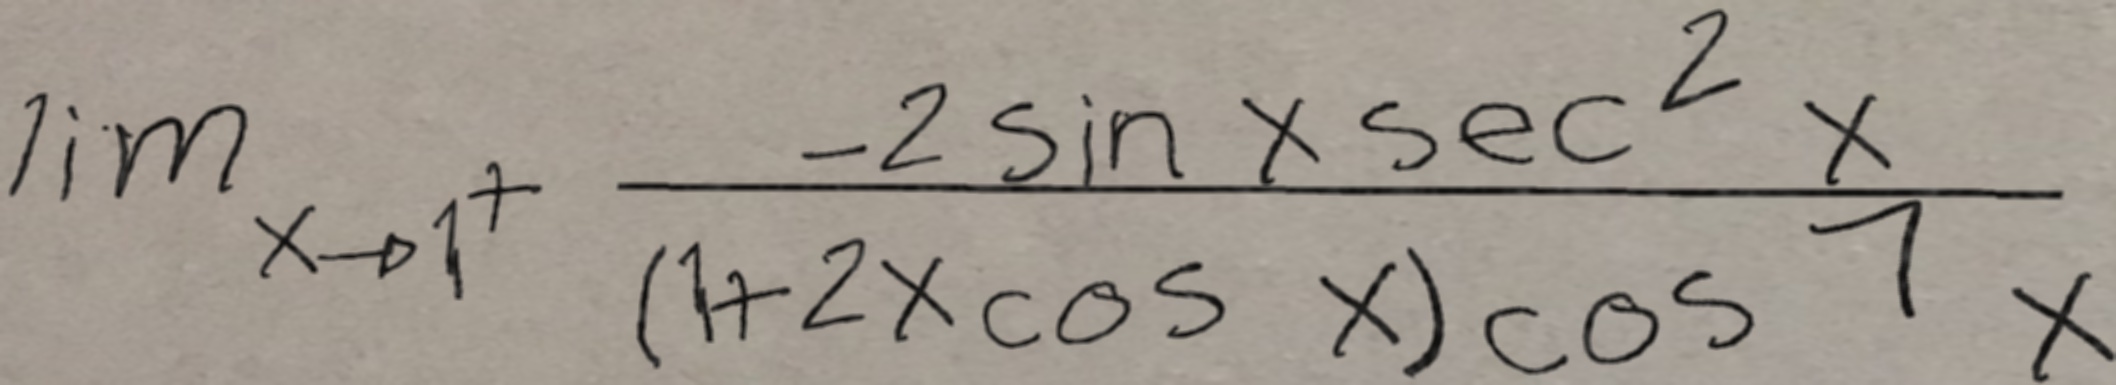 \lim_{x \to 1^+} \frac{-2 \sin x \sec^2 x}{(1+2x \cos x) \cos^7 x}